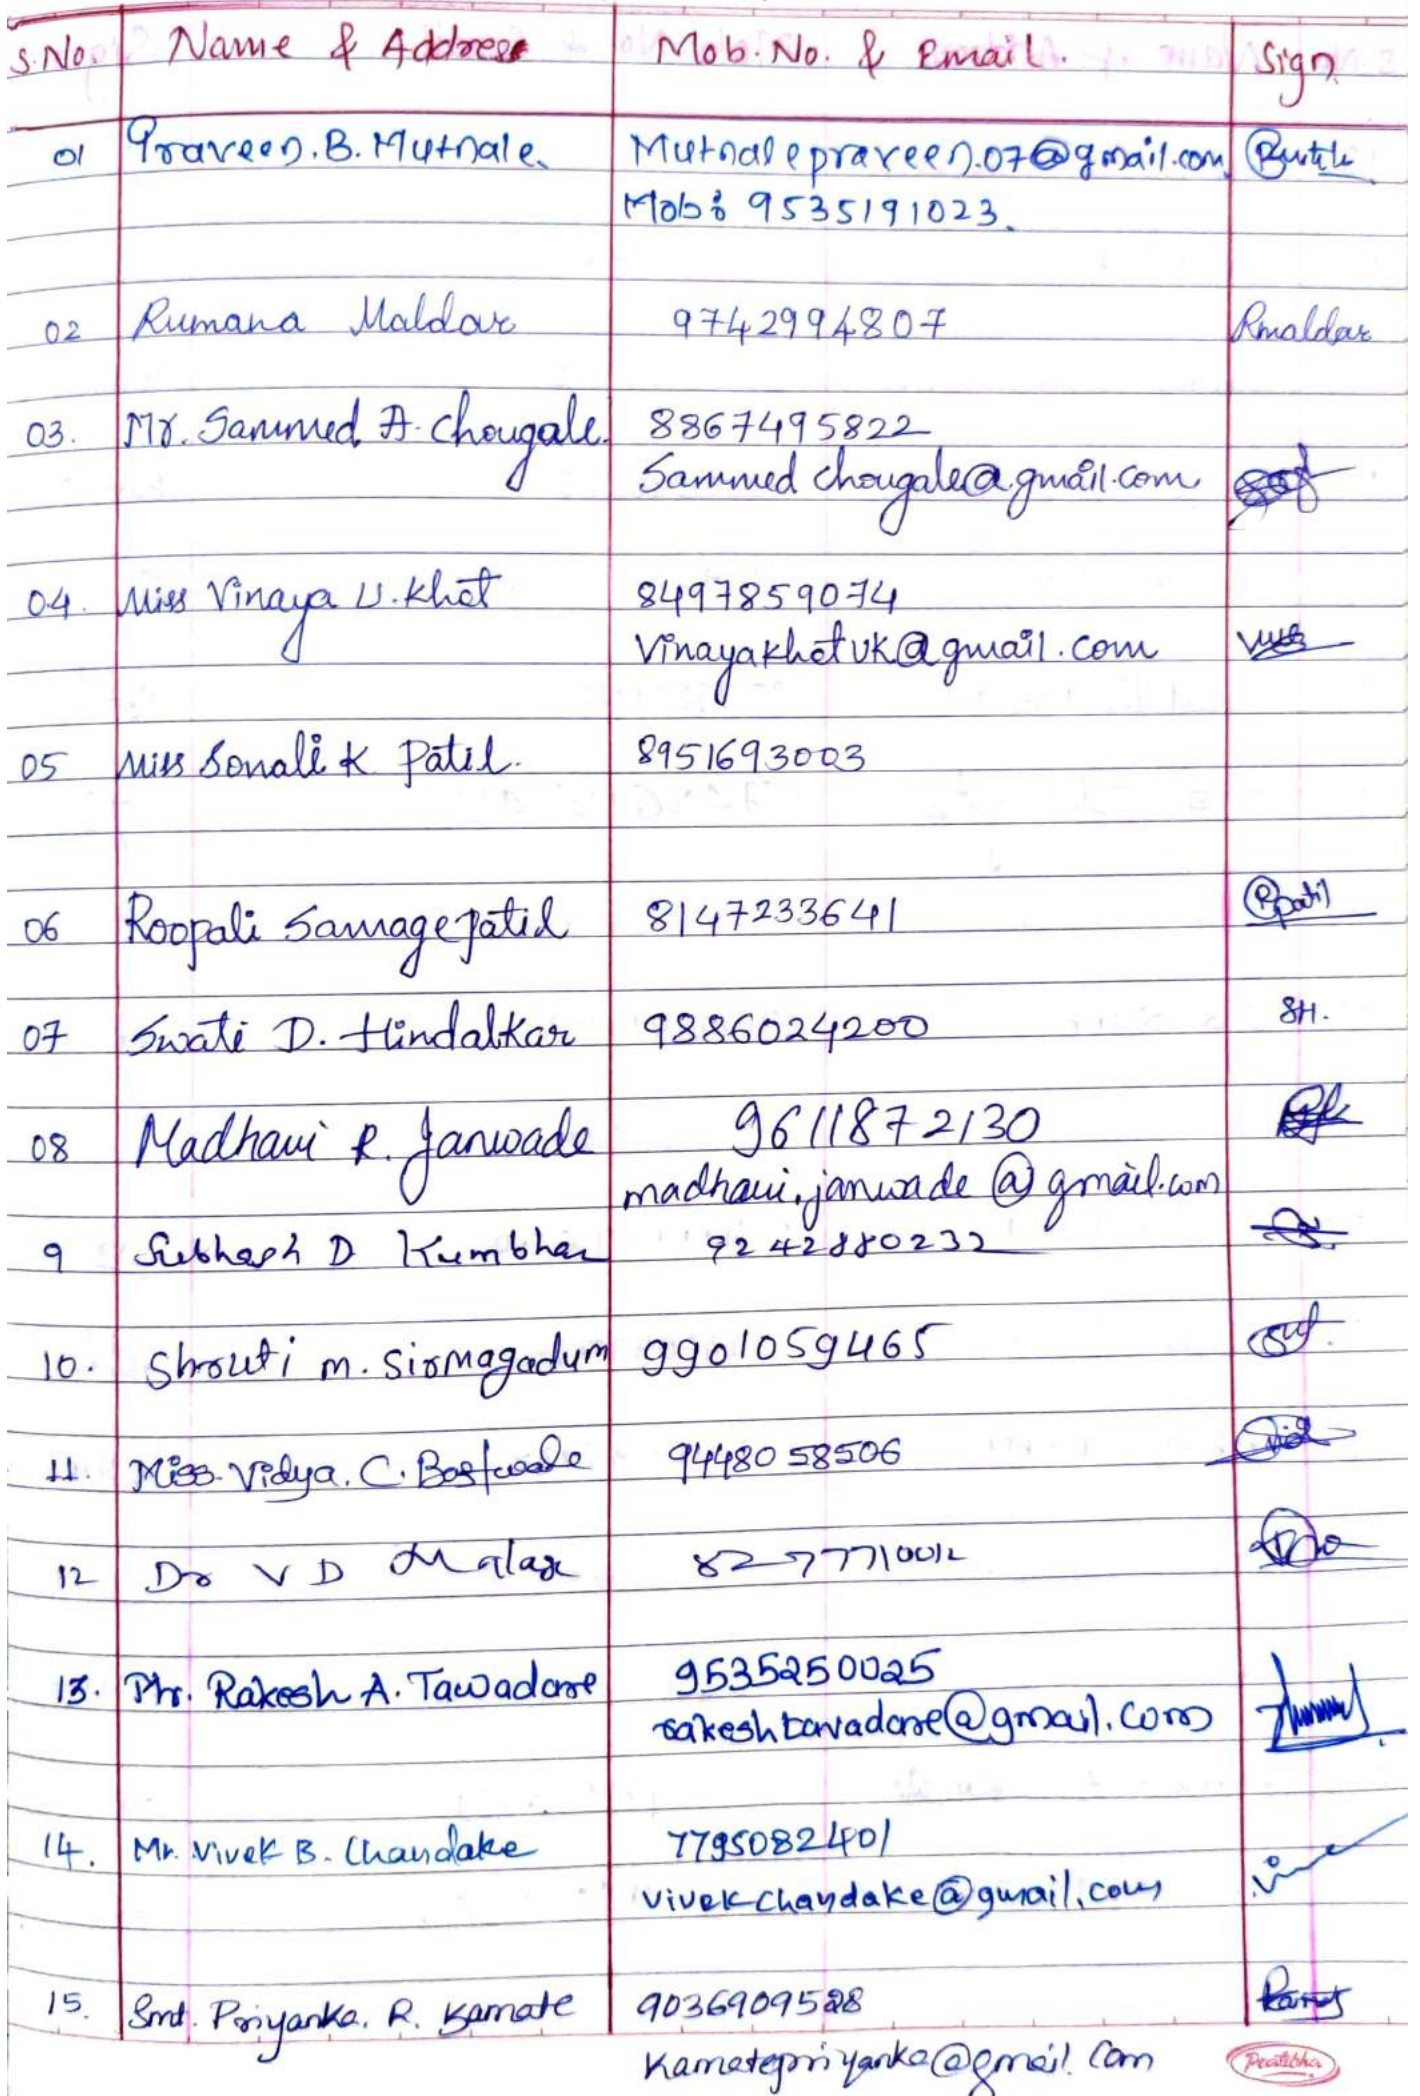 S.No. Name & Address Mob. No. & Email. Sign
01 Praveen. B. Mutnale. Mutnalepraveen.07@gmail.com
Mob: 9535191023.
02 Rumana Maldar 9742994807 Rmaldar
03. Mr. Sammed A. Chougale. 8867495822
Sammedchougale@gmail.com
04. Miss Vinaya U. Khot 8497859074
Vinayakhotuk@gmail.com
05 Miss Sonali K Patil. 8951693003
06 Roopali Samagepatil 8147233641 Rpatil
07 Swati D. Hindalkar 9886024200 SH.
08 Madhavi R. Janwade 9611872130
madhavi.janwade@gmail.com
9 Subhash D Kumbhar 9242880232
10. Shruti m. Sirmagadum 9901059465
11. Miss. Vidya. C. 9448058506
12 Dr V D 8277710012
13. Mr. Rakesh A. Tawadare 9535250025
rakeshtavadare@gmail.com
14. Mr. Vivek B. Chandake 7795082401
vivekchandake@gmail.com
15. Smt. Priyanka. R. Kamate 9036909528
Kamatepriyanka@gmail.com Pratibha